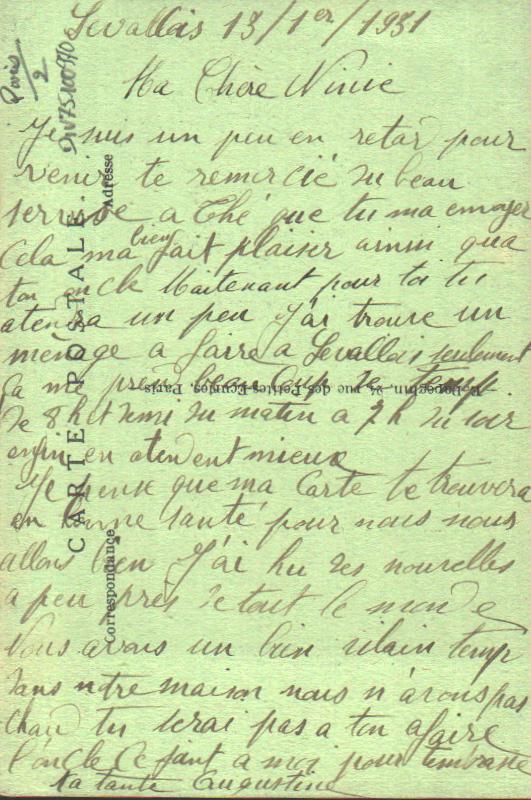 Levallois 13/1er/1931
Ma Chère Ninie
Je suis un peu en retar pour
venir te remercié du beau
service a Thé que tu ma envoyer
Cela ma bien fait plaiser ainsi qua
ton oncle Maitenant pour toi tu
atendra un peu J'ai trouve un
ménage a faire a Levallois seulement
ça me prend beaucoup de temp
de 8h et demi du matin a 7h du soir
enfin en atendent mieux
Je pense que ma Carte te trouvera
en bonne santé pour nous nous
allons bien J'ai hu des nouvelles
a peu près de tout le monde
Nous avons un bien vilain temp
dans notre maison nous n'avons pas
chau tu serai pas a ton afaire
l'oncle Ce joint a moi pour t'embrasse
ta tante Augustine
Paris
2
CARTE POSTALE
Correspondance
Adresse
27, rue des Petites-Écuries, Paris